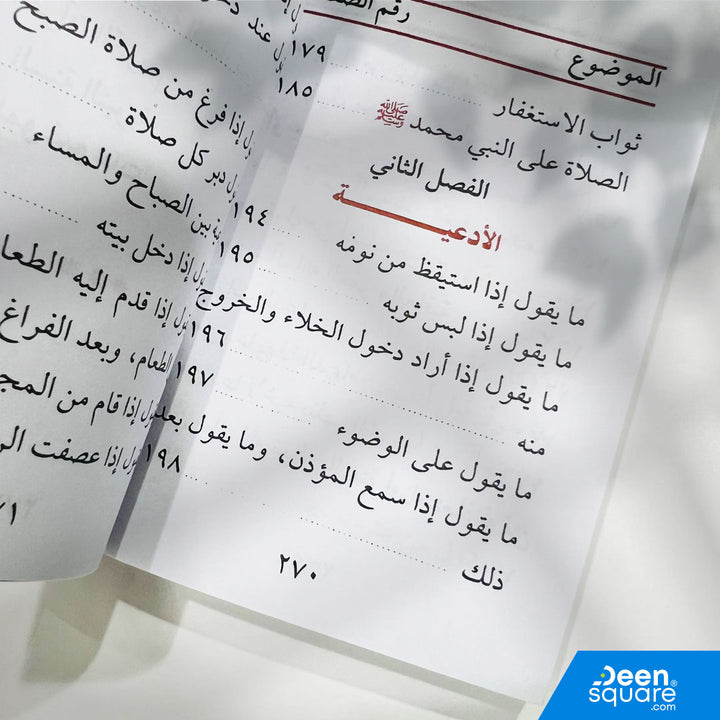 الموضوع رقم
ثواب الاستغفار ١٧٩
الصلاة على النبي محمد ﷺ ١٨٥
الفصل الثاني
الأدعيـــة
ما يقول إذا استيقظ من نومه ١٩٤
ما يقول إذا لبس ثوبه ١٩٥
ما يقول إذا أراد دخول الخلاء والخروج
منه ١٩٦
ما يقول على الوضوء ١٩٧
ما يقول إذا سمع المؤذن، وما يقول بعد
ذلك ١٩٨
٢٧٠
عند
إذا فرغ من صلاة الصبح
دبر كل صلاة
بين الصباح والمساء
إذا دخل بيته
إذا قدم إليه
الطعام، وبعد الفراغ
إذا قام من
إذا عصفت
Deen
square®
.com